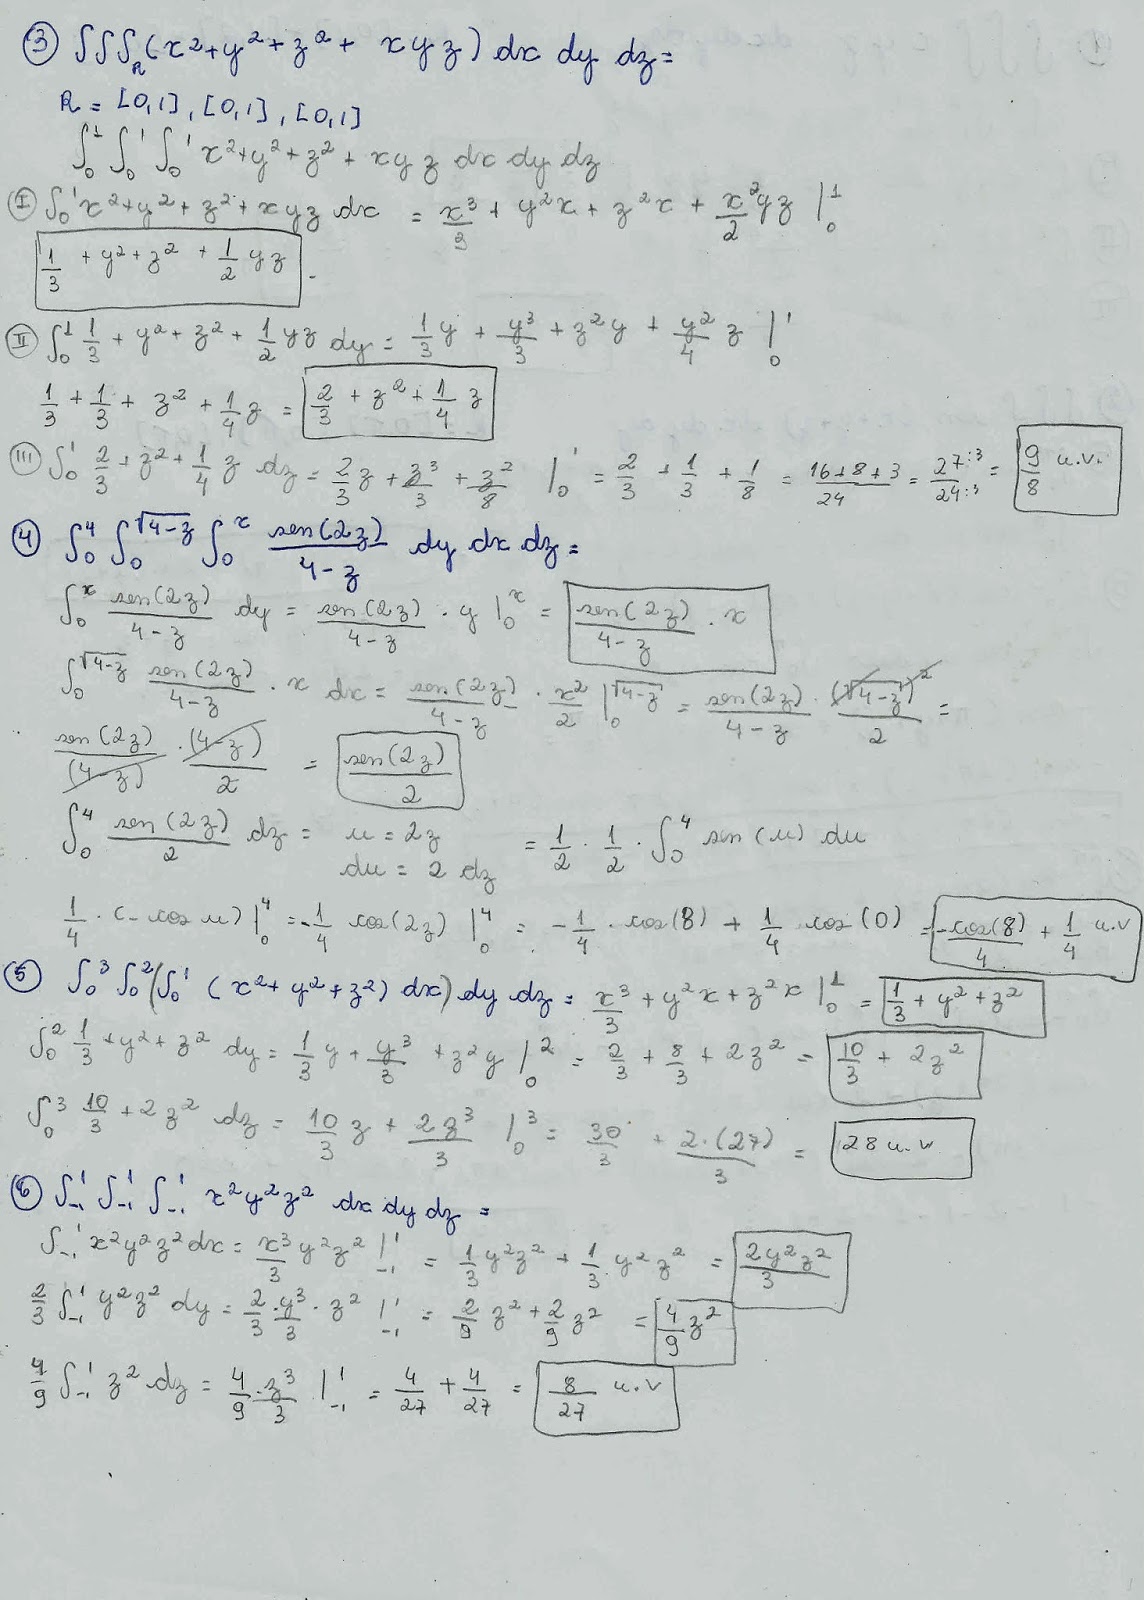 ③ ∫∫∫_R (x² + y² + z² + xyz) dx dy dz =
R = [0,1], [0,1], [0,1]
∫₀¹ ∫₀¹ ∫₀¹ x² + y² + z² + xyz dx dy dz
Ⅰ ∫₀¹ x² + y² + z² + xyz dx = x³/3 + y²x + z²x + x²/2 yz |₀¹
1/3 + y² + z² + 1/2 yz .
Ⅱ ∫₀¹ 1/3 + y² + z² + 1/2 yz dy = 1/3 y + y³/3 + z²y + y²/4 z |₀¹
1/3 + 1/3 + z² + 1/4 z = 2/3 + z² + 1/4 z
Ⅲ ∫₀¹ 2/3 + z² + 1/4 z dz = 2/3 z + z³/3 + z²/8 |₀¹ = 2/3 + 1/3 + 1/8 = (16+8+3)/24 = 27:3/24:3 = 9/8 u.v.
④ ∫₀⁴ ∫₀^√(4-z) ∫₀ˣ sen(2z)/(4-z) dy dx dz =
∫₀ˣ sen(2z)/(4-z) dy = sen(2z)/(4-z) · y |₀ˣ = sen(2z)/(4-z) · x
∫₀^√(4-z) sen(2z)/(4-z) · x dx = sen(2z)/(4-z) · x²/2 |₀^√(4-z) = sen(2z)/(4-z) · (√(4-z))²/2 =
sen(2z)/(4-z) · (4-z)/2 = sen(2z)/2
∫₀⁴ sen(2z)/2 dz = u = 2z = 1/2 · 1/2 · ∫₀⁴ sen(u) du
du = 2 dz
1/4 · (-cos u) |₀⁴ = -1/4 cos(2z) |₀⁴ = -1/4 · cos(8) + 1/4 cos(0) = -cos(8)/4 + 1/4 u.v
⑤ ∫₀³ ∫₀² (∫₀¹ (x² + y² + z²) dx) dy dz = x³/3 + y²x + z²x |₀¹ = 1/3 + y² + z²
∫₀² 1/3 + y² + z² dy = 1/3 y + y³/3 + z²y |₀² = 2/3 + 8/3 + 2z² = 10/3 + 2z²
∫₀³ 10/3 + 2z² dz = 10/3 z + 2z³/3 |₀³ = 30/3 + 2·(27)/3 = 28 u.v
⑥ ∫₋₁¹ ∫₋₁¹ ∫₋₁¹ x²y²z² dx dy dz =
∫₋₁¹ x²y²z² dx = x³/3 y²z² |₋₁¹ = 1/3 y²z² + 1/3 y²z² = 2y²z²/3
2/3 ∫₋₁¹ y²z² dy = 2/3 · y³/3 · z² |₋₁¹ = 2/9 z² + 2/9 z² = 4/9 z²
4/9 ∫₋₁¹ z² dz = 4/9 · z³/3 |₋₁¹ = 4/27 + 4/27 = 8/27 u.v